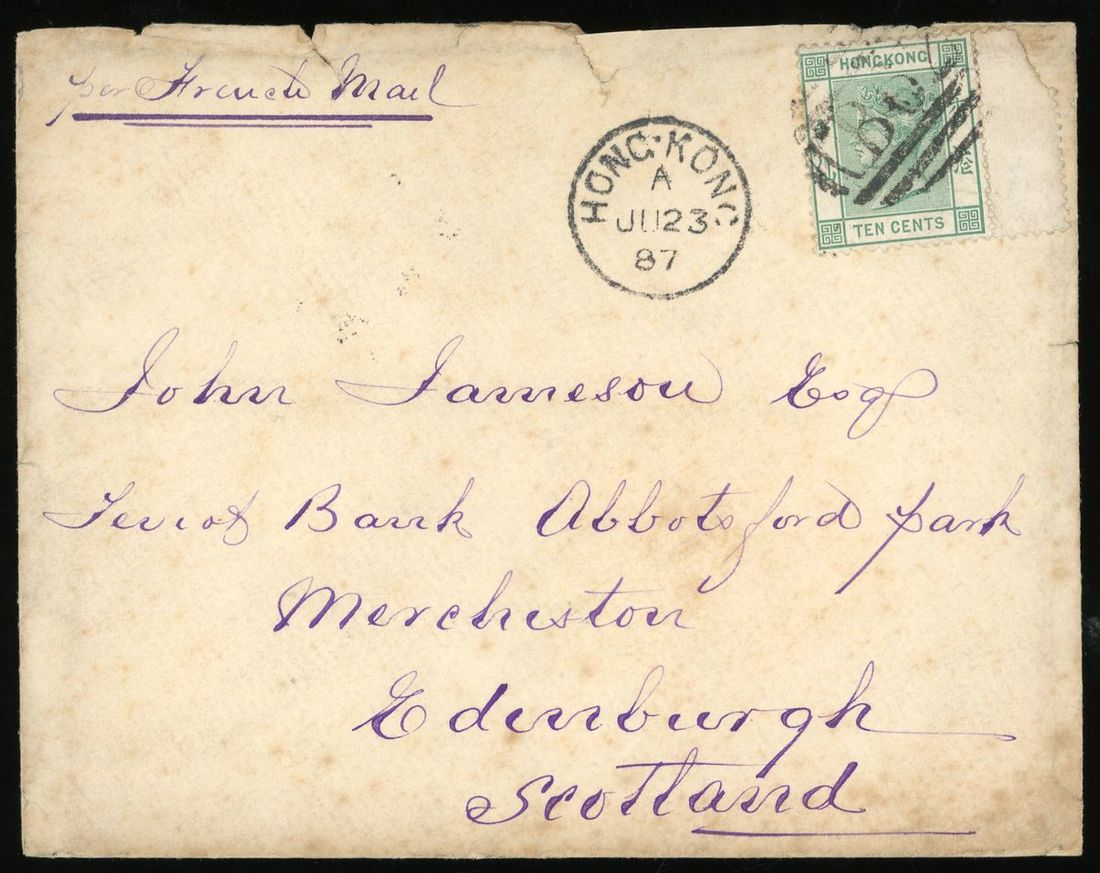 per French Mail
HONG·KONG
A
JU 23
87
HONGKONG
B
TEN CENTS
John Jameson Esq
Teviot Bank Abbotsford park
Merchiston
Edinburgh
Scotland